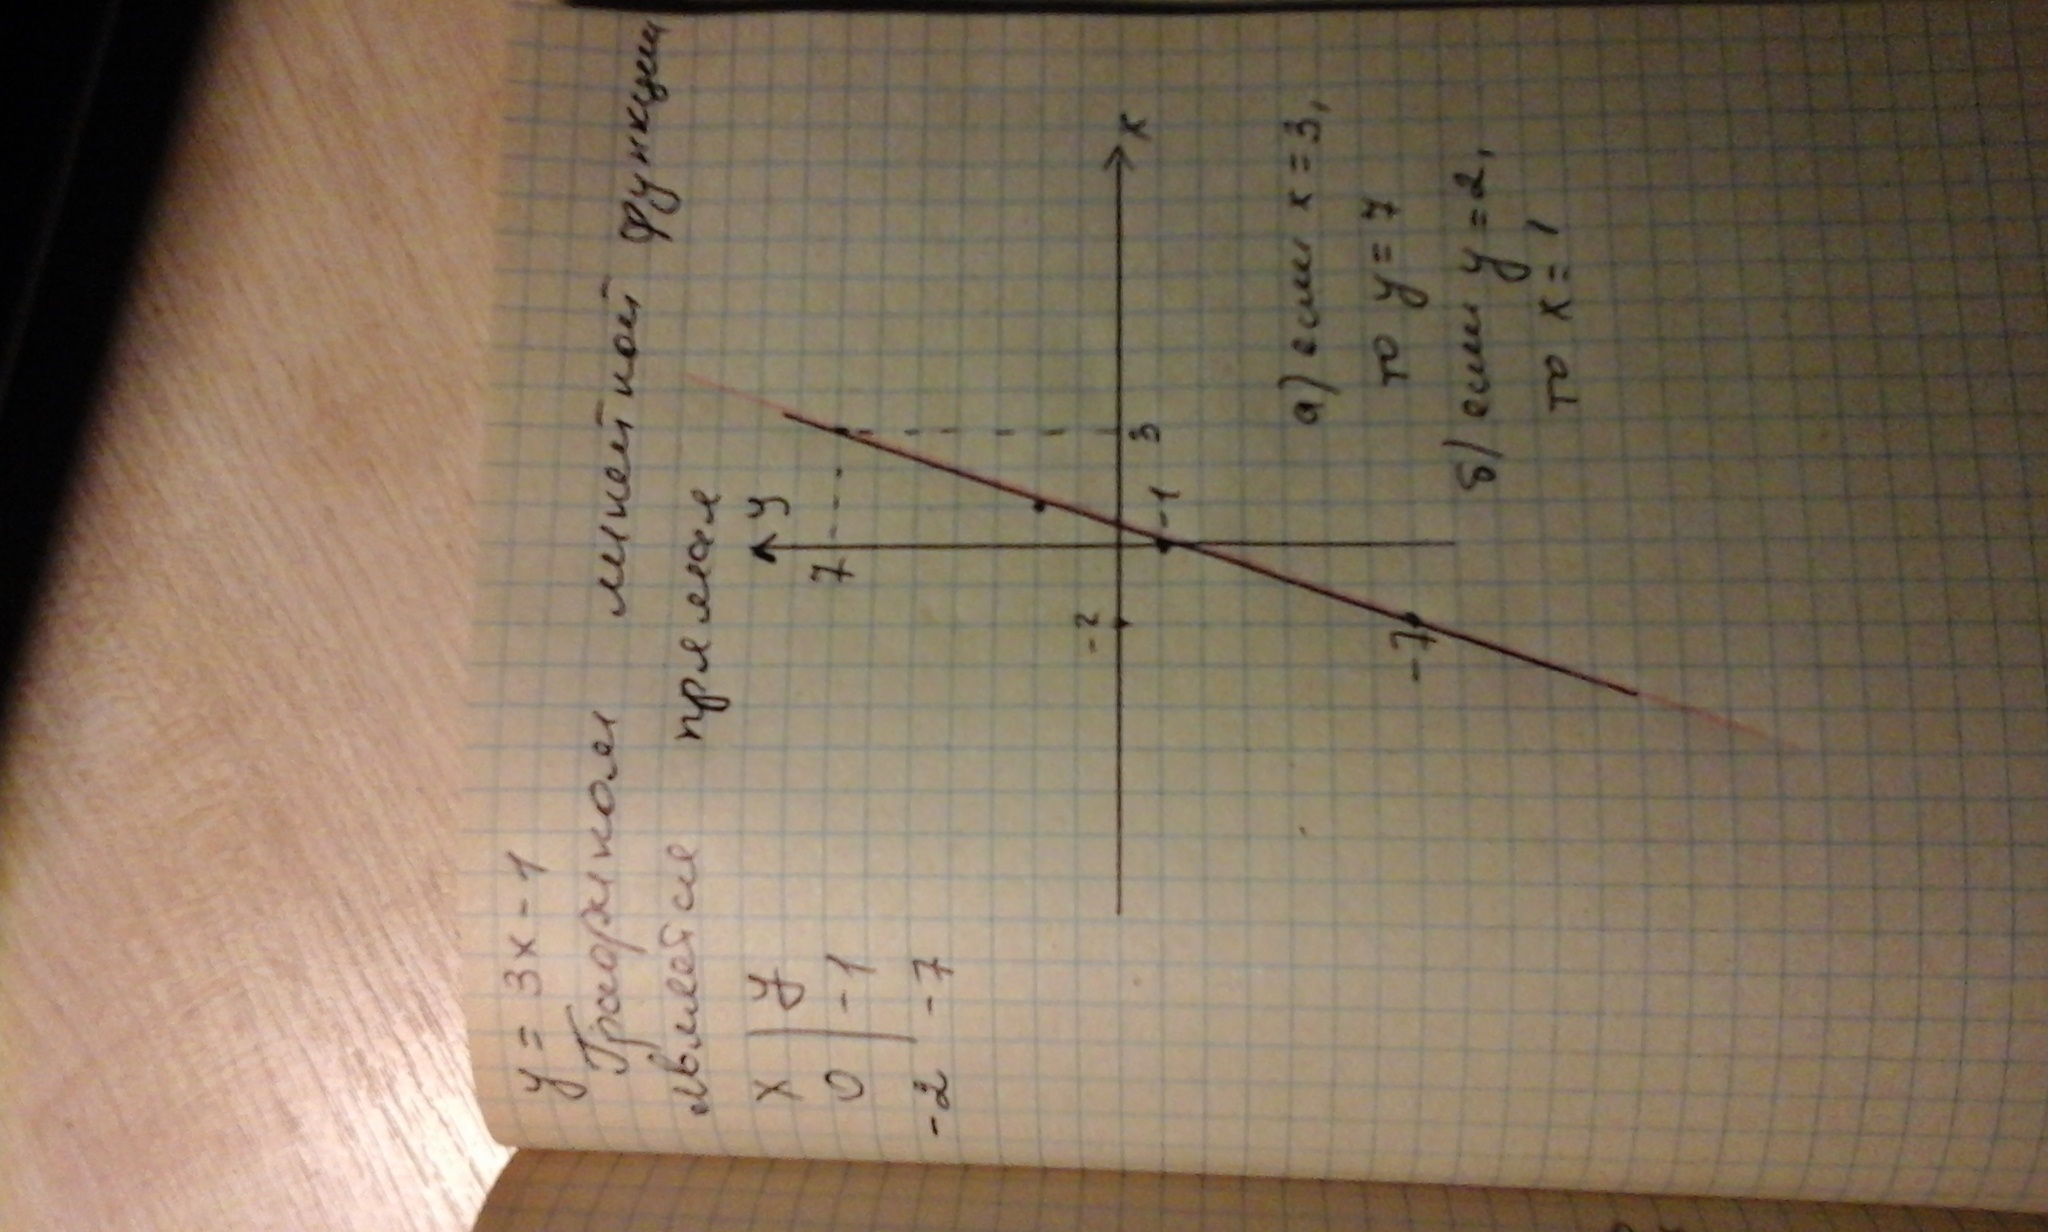 y = 3x - 1
Графиком линейной функции
является прямая
x y
0 -1
-2 -7
y
7
x
3
-2
-1
-7
а) если x = 3,
то y = 7
б) если y = 2,
то x = 1